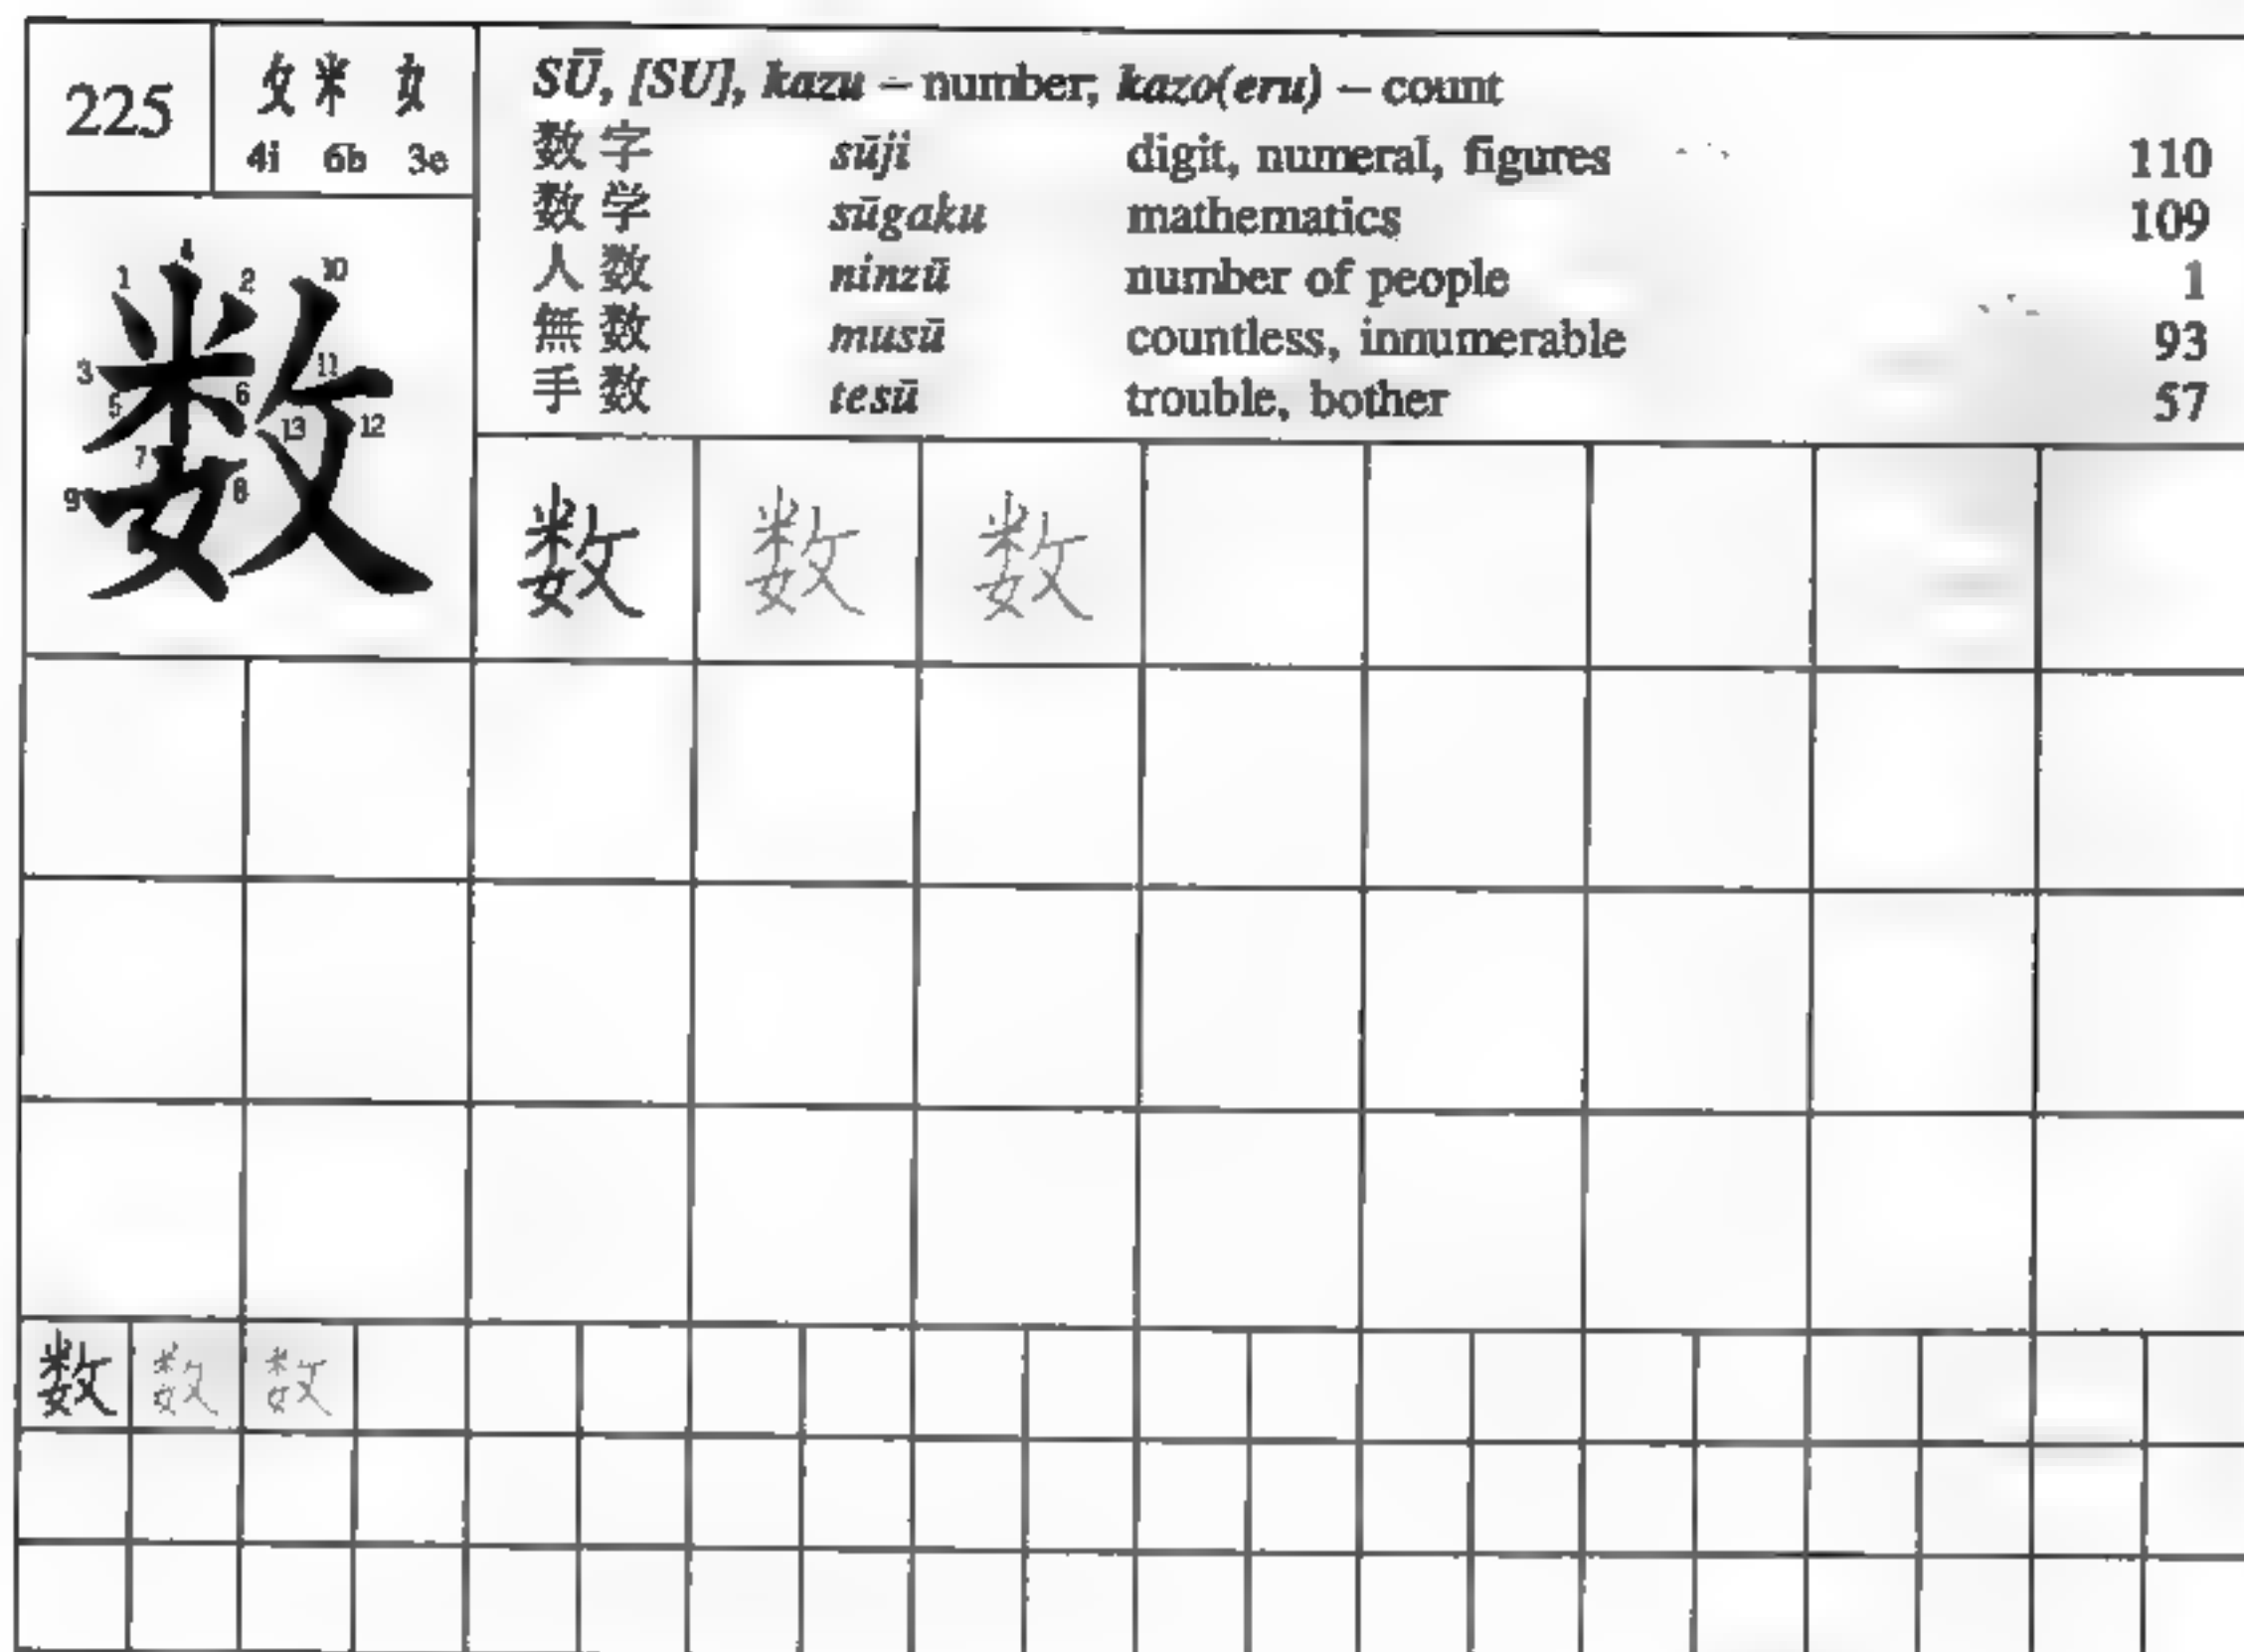 225
攵 米 女
4i 6b 3e
SŪ, [SU], kazu – number; kazo(eru) – count
数字 sūji digit, numeral, figures 110
数学 sūgaku mathematics 109
人数 ninzū number of people 1
無数 musū countless, innumerable 93
手数 tesū trouble, bother 57
数
1 2 3 4 5 6 7 8 9 10 11 12 13
数 数 数
数 数 数